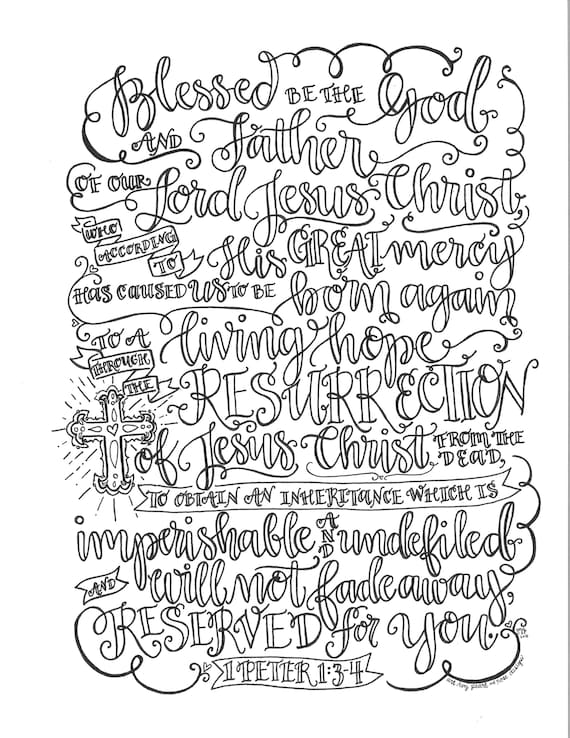 Blessed BE THE God
AND Father
OF OUR Lord Jesus Christ
WHO ACCORDING TO His GREAT mercy
HAS CAUSED US TO BE born again
TO A living hope
THROUGH THE RESURRECTION
of Jesus Christ FROM THE DEAD,
TO OBTAIN AN INHERITANCE WHICH IS
imperishable AND undefiled
AND will not fade away,
RESERVED for You.
1 PETER 1:3-4